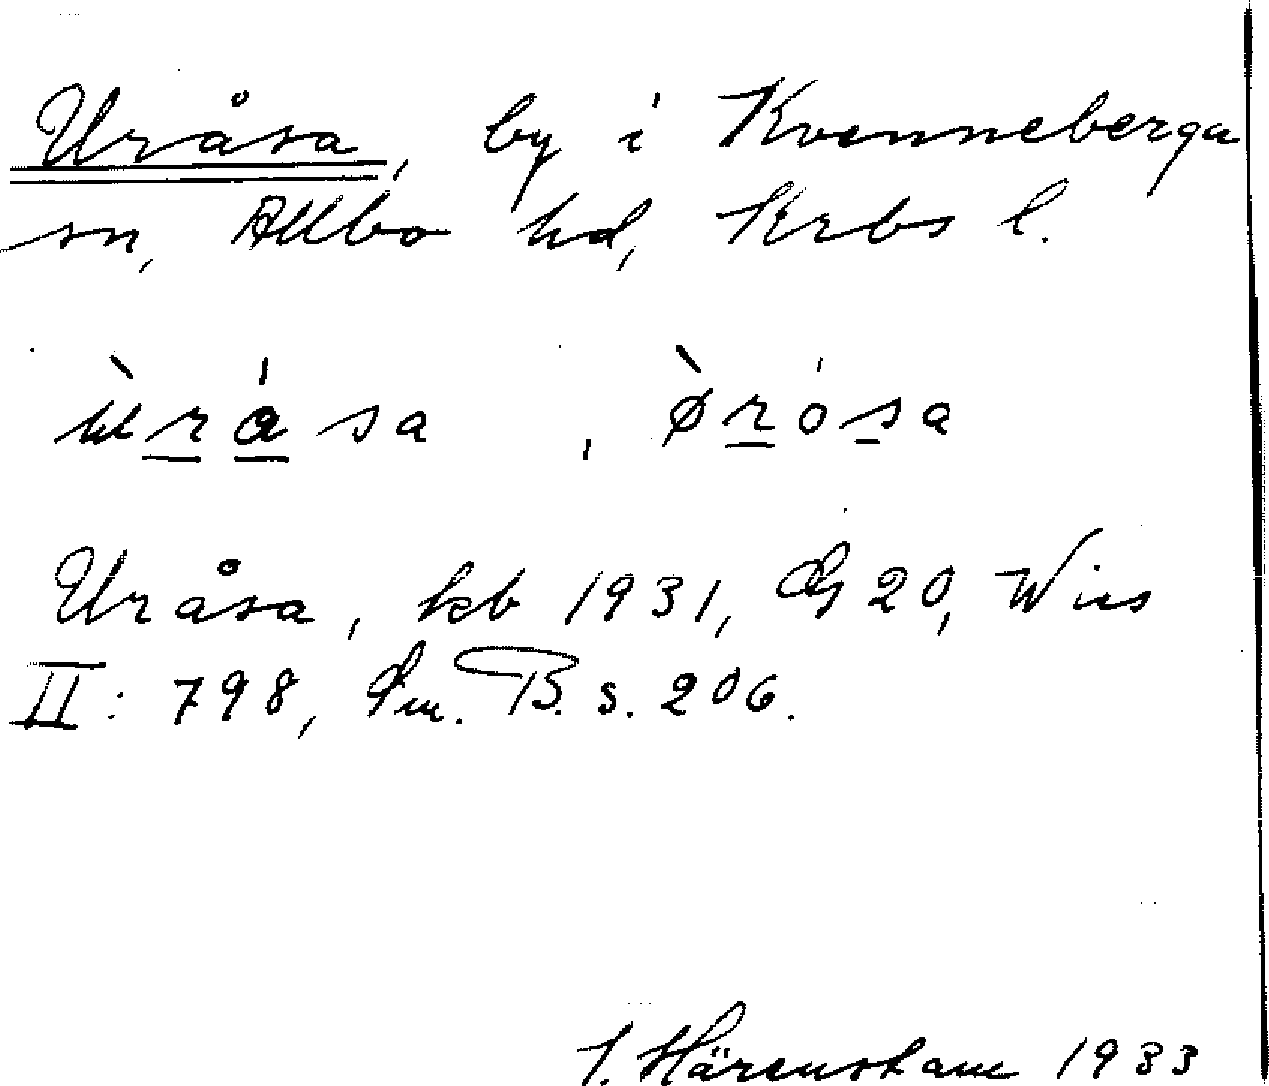 Uråsa, by i Kvenneberga
sn, Allbo hd, Krbs l.
ùrá sa , ø̀rósa
Uråsa, kb 1931, GS 20, Wies
II: 798, Sm. B. s. 206.
J. Härenstam 1933